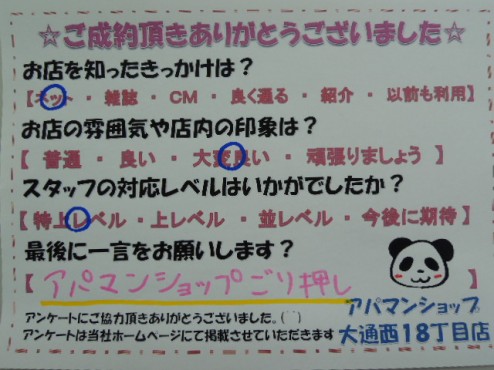 ☆ご成約頂きありがとうございました☆
お店を知ったきっかけは？
【ネット ・ 雑誌 ・ CM ・ 良く通る ・ 紹介 ・ 以前も利用】
お店の雰囲気や店内の印象は？
【 普通 ・ 良い ・ 大変良い ・ 頑張りましょう 】
スタッフの対応レベルはいかがでしたか？
【特上レベル ・ 上レベル ・ 並レベル ・ 今後に期待】
最後に一言をお願いします？
【 アパマンショップごり押し 】
アンケートにご協力頂きありがとうございました。(^^)
アンケートは当社ホームページにて掲載させていただきます
アパマンショップ
大通西18丁目店